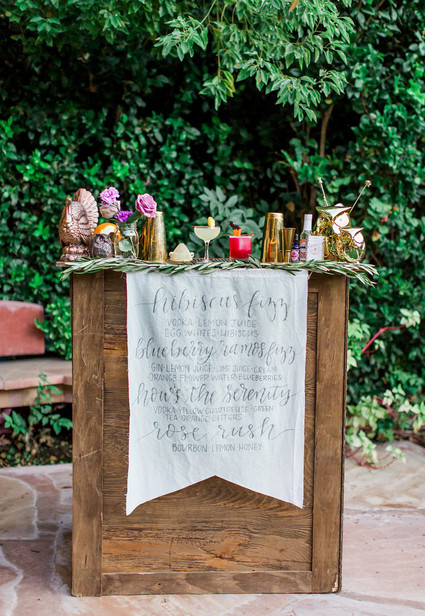 hibiscus fizz
VODKA·LEMON JUICE
EGG WHITE·HIBISCUS
blueberry ramos fizz
GIN·LEMON JUICE·LIME JUICE·CREAM
ORANGE FLOWER WATER·BLUEBERRIES
how's the serenity
VODKA·YELLOW CHARTREUSE·GREEN
TEA·ORANGE BITTERS
rose rush
BOURBON·LEMON·HONEY